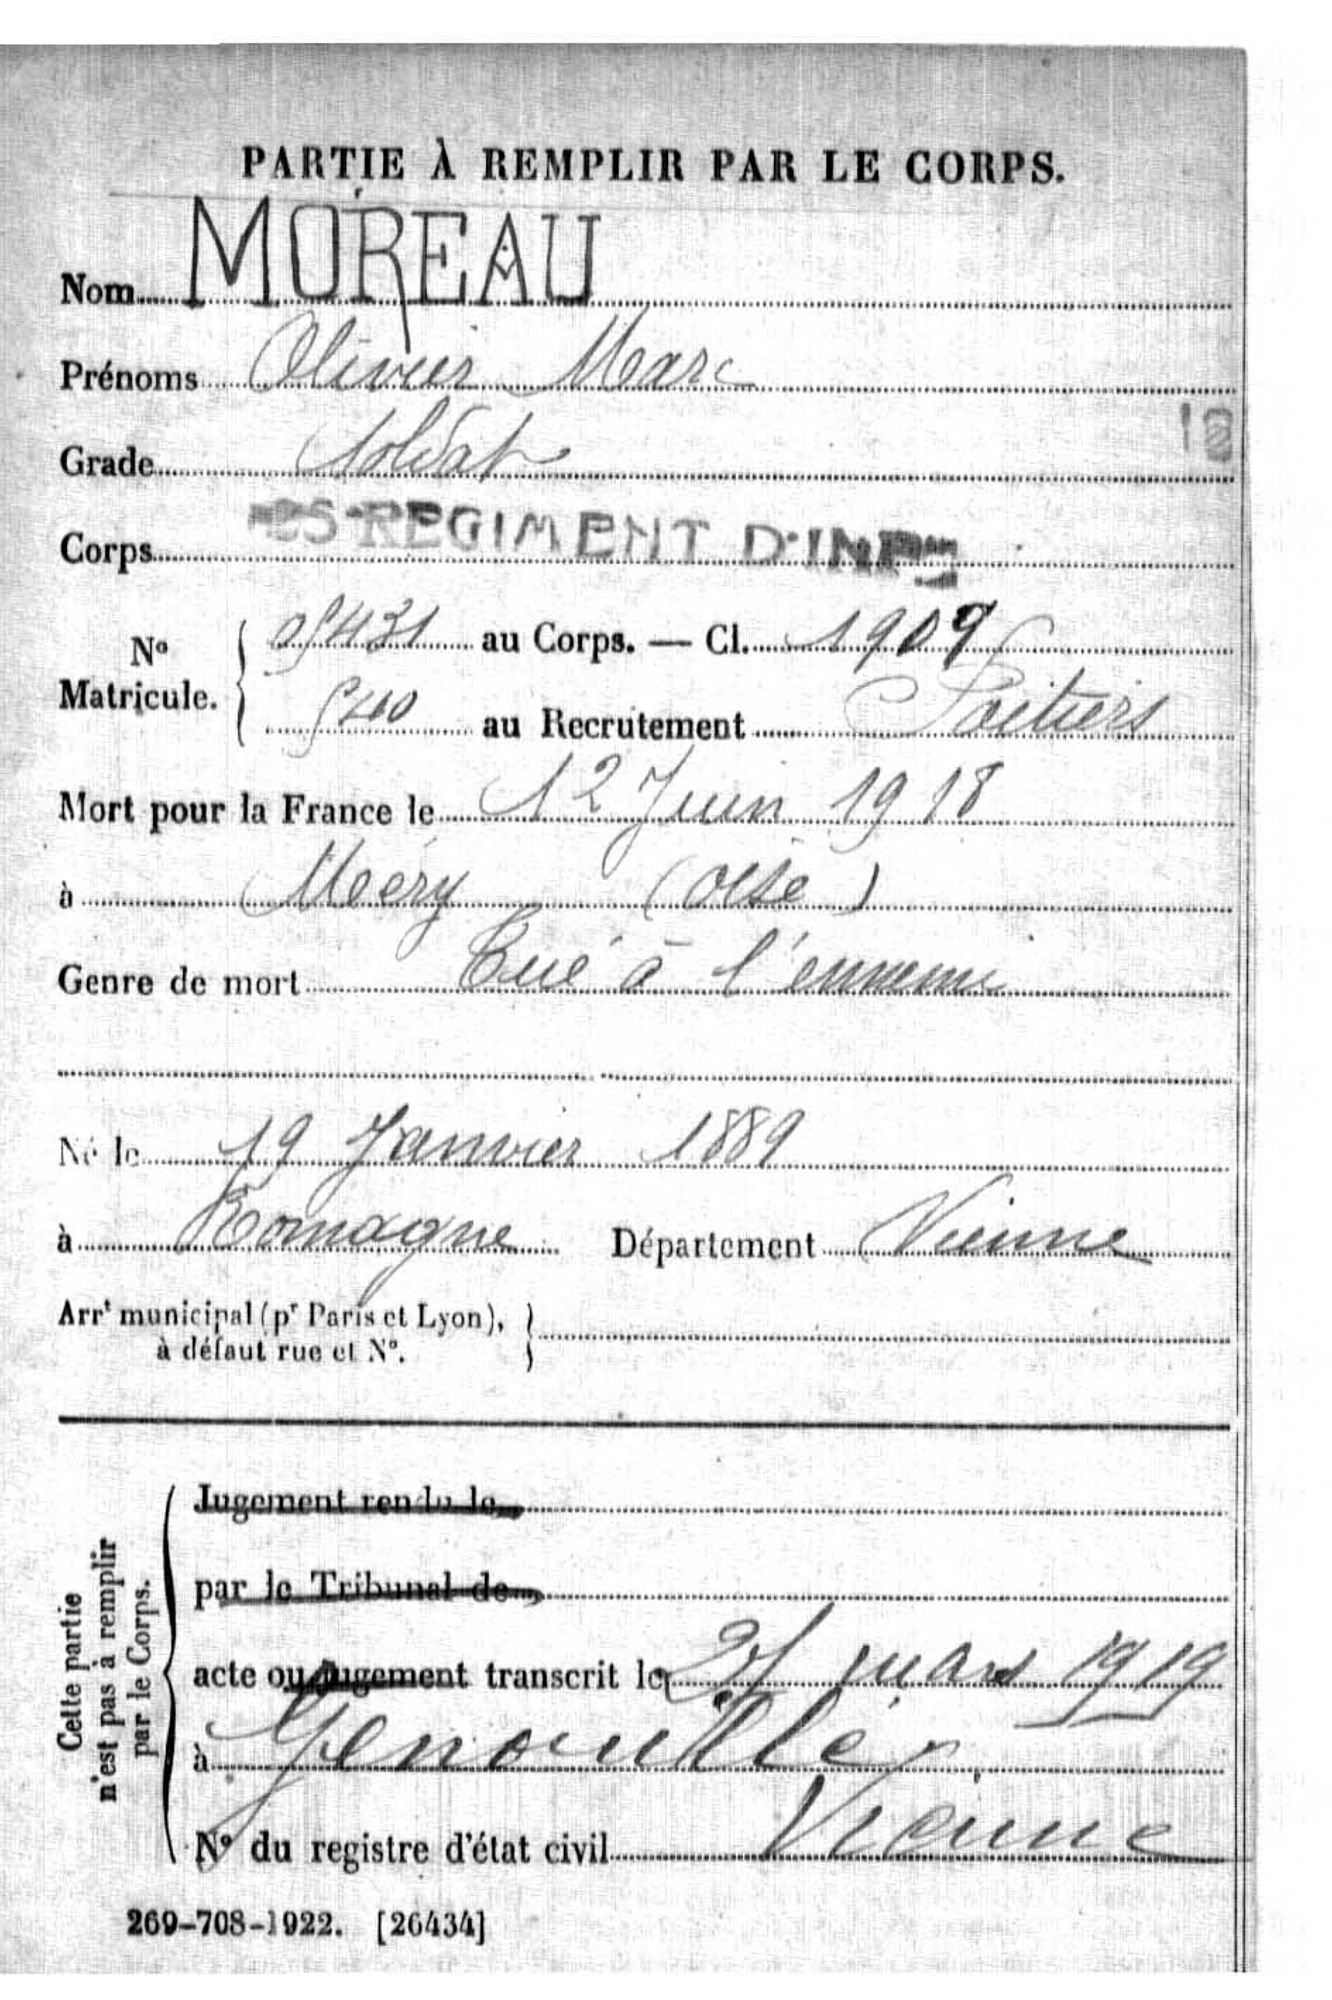 PARTIE À REMPLIR PAR LE CORPS.
Nom MOREAU
Prénoms Olivier Marc
Grade Soldat
Corps REGIMENT D'INF
No Matricule. au Corps. — Cl. 1909
au Recrutement Poitiers
Mort pour la France le 12 Juin 1918
à Méry (Oise)
Genre de mort Tué à l'ennemi
Né le 19 Janvier 1889
à Romagne Département Vienne
Arrt municipal (pr Paris et Lyon),
à défaut rue et No.
Cette partie n'est pas à remplir par le Corps.
Jugement rendu le
par le Tribunal de
acte ou jugement transcrit le mars 1919
à Genouillé
No du registre d'état civil Vienne
269-708-1922. [26434]